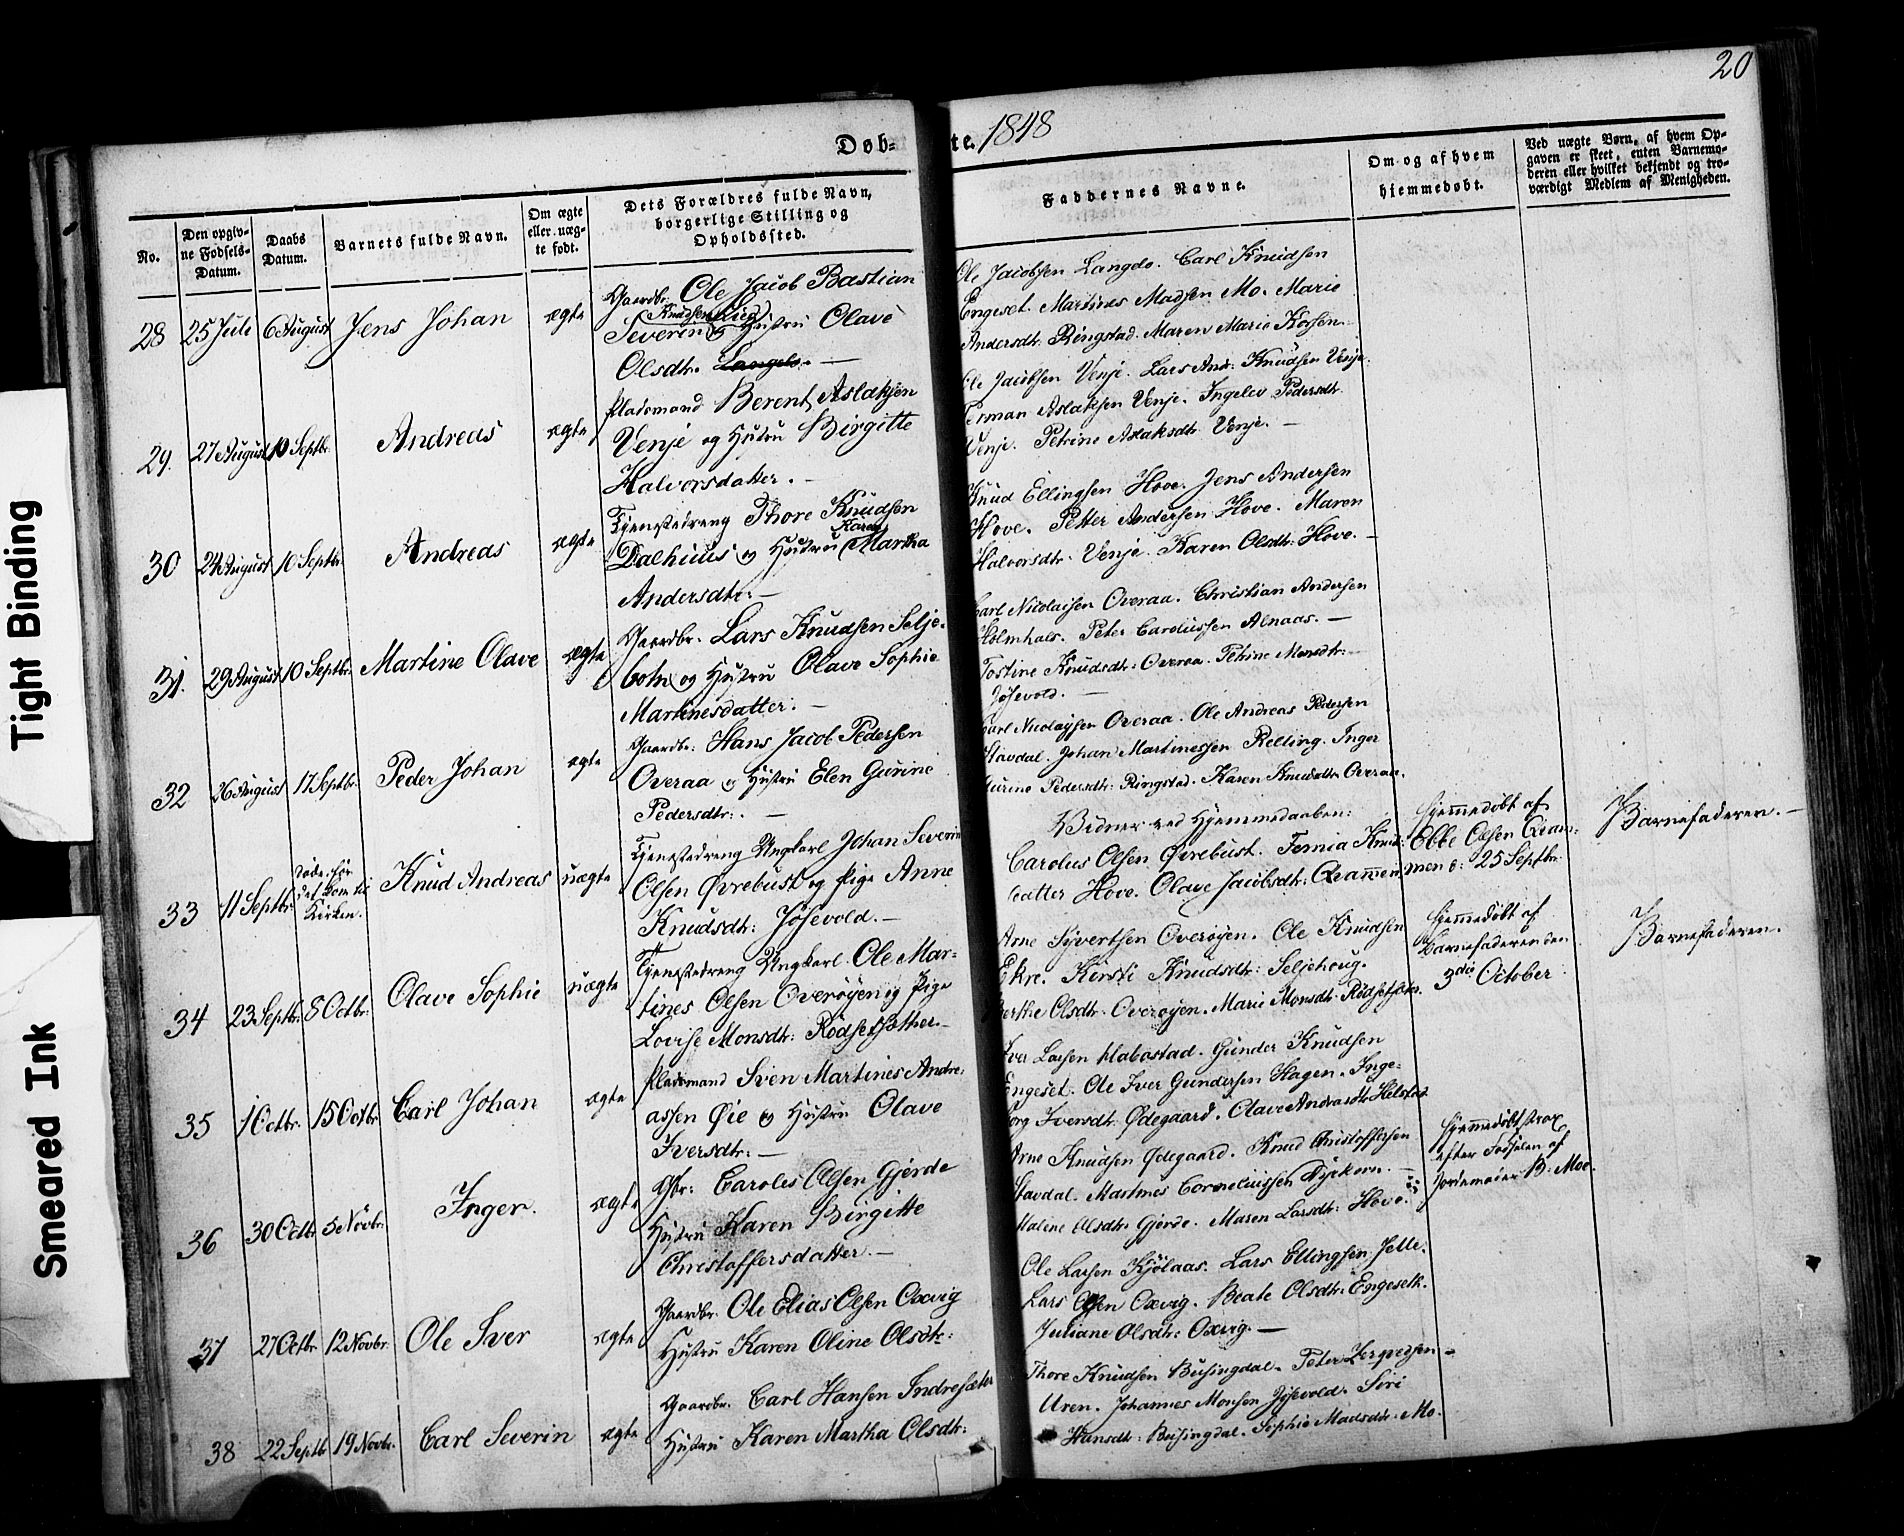 20
Døb-
te. 1848
No.
Den opgiv-
ne Fødsels-
Datum.
Daabs
Datum.
Barnets fulde Navn.
Om ægte
eller uæg-
te født.
Dets Forældres fulde Navn,
borgerlige Stilling og
Opholdssted.
Faddernes Navne.
Om og af hvem
hjemmedøbt.
Ved uægte Børn, af hvem Op-
gaven er skeet, enten Barnemo-
deren eller hvilket bekjendt og tro-
værdigt Medlem af Menigheden.
28 25 Juli 6 August Jens Johan ægte
Gaardbr. Ole Jacob Bastian
Severin Knudsen og Hustru Olave
Olsdtr. Langelo. —
Ole Jacobsen Langelo. Carl Knudsen
Engeset. Martines Madsen Mo. Marie
Andersdtr. Ringstad. Maren Marie
29. 27 August 10 Septbr. Andreas ægte
Pladsmand Berent Aslaksen
Venje og Hustru Birgitte
Halvorsdatter. —
Ole Jacobsen Venje. Lars And: Knudsen Venje.
Aslaksen Venje. Ingelev Pedersdtr.
Venje. Petrine Aslaksdtr. Venje. —
30 24 August 10 Septbr. Andreas ægte
Tjenestedreng Thore Knudsen
Karen
Dalhuus og Hustru Martha
Andersdtr: —
Knud Ellingsen Hove. Jens Andersen
Hove. Petter Andersen Hove. Maren
Halvorsdtr. Venje. Karen Olsdtr: Hove. —
31. 29 August 10 Septbr. Martine Olave ægte
Gaardbr. Lars Knudsen Selje-
botn og Hustru Olave Sophie
Martinesdatter. —
Carl Nicolaisen Overaa. Christian Andersen
Holmhals. Peter Carolussen Alnaas. —
Tostine Knudsdtr: Overaa. Petrine Monsdtr:
Jøsevold. —
32 26 August 17 Septbr. Peder Johan ægte
Gaardbr: Hans Jacob Pedersen
Overaa og Hustru Elen Gurine
Pedersdtr: —
Carl Nicolaysen Overaa. Ole Andreas Pedersen
Stavdal. Johan Martinessen Relling. Inger
Gurine Pedersdtr: Ringstad. Karen Knudsdtr. Overaa.
33 11 Septbr. døde før
det kom til
Kirken. Knud Andreas uægte
Tjenestedreng Ungkarl Johan Severin
Olsen Øvrebust og Pige Anne
Knudsdtr: Jøsevold. —
Vidner ved Hjemmedaaben:
Carolus Olsen Øvrebust. Knuds-
datter Hove. Olave Jacobsdtr: Qvammen
Hjemmedøbt af
Ebbe Olsen Qvam-
men d: 25 Septbr.
Barnefaderen. —
34 23 Septbr. 8 Octbr. Olave Sophie uægte
Tjenestedreng Ungkarl Ole Mar-
tines Olsen Overøyen og Pige
Lovise Monsdtr: Rødsetsæther. —
Arne Syvertsen Overøyen. Ole Knudsen
Ekre. Kirsti Knudsdtr: Seljehoug.
Berthe Olsdtr. Overøyen. Marie Monsdtr: Rødsetsæter.
Hjemmedøbt af
Barnefaderen den
3die October
Barnefaderen.
35 1 Octbr. 15 Octbr. Carl Johan ægte
Pladsmand Sven Martines Andre-
assen Øie og Hustru Olave
Iversdtr: —
Iver Larsen Habostad. Gunder Knudsen
Engeset. Ole Iver Gundersen Hagen. Inge-
borg Iversdtr: Ødegaard. Olave Andreasdtr. Helstad.
36 30 Octbr. 5 Novbr. Inger. ægte
Gbr: Carolus Olsen Gjerde
Hustru Karen Birgitte
Christoffersdatter. —
Arne Knudsen Ødegaard. Knud Christoffersen
Stavdal. Martines Corneliussen —
Maline Olsdtr. Gjerde. Maren Larsdtr: Hove.
Hjemmedøbt strax
efter Fødselen af
Jordemoder B: Moe.
37 27 Octbr. 12 Novbr. Ole Iver ægte
Gaardbr. Ole Elias Olsen Oxvig
Hustru Karen Oline Olsdtr:
Ole Larsen Kjølaas. Lars Ellingsen Jelle.
Lars Olsen Oxvig. Beate Olsdtr: Engeseth.
Juliane Olsdtr: Oxvig. —
38 22 Septbr. 19 Novbr. Carl Severin ægte
Gaardbr. Carl Hansen Indresæter
Hustru Karen Martha Olsdtr:
Thore Knudsen Busingdal. Peter
Uren. Johannes Monsen Jøsevold. Siri
Hansdtr: Busingdal. Sophie Madsdtr: Mo.
Tight Binding
Smeared Ink